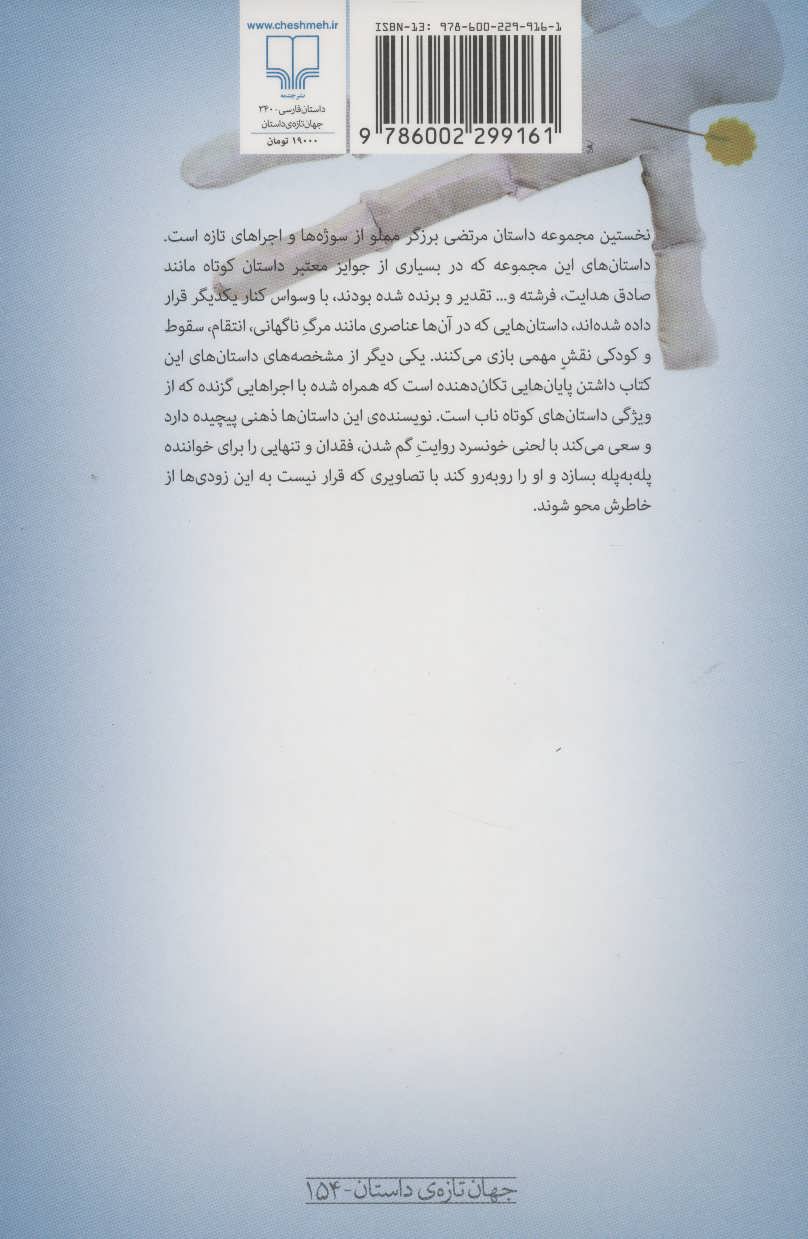 www.cheshmeh.ir
نشرچشمه
داستان فارسی - ۳۴۰
جهان تازه‌ی داستان
۱۹۰۰۰ تومان
ISBN-13: 978-600-229-916-1
9 786002 299161
نخستین مجموعه داستان مرتضی برزگر مملو از سوژه‌ها و اجراهای تازه است.
داستان‌های این مجموعه که در بسیاری از جوایز معتبر داستان کوتاه مانند
صادق هدایت، فرشته و... تقدیر و برنده شده بودند، با وسواس کنار یکدیگر قرار
داده شده‌اند، داستان‌هایی که در آن‌ها عناصری مانند مرگِ ناگهانی، انتقام، سقوط
و کودکی نقشِ مهمی بازی می‌کنند. یکی دیگر از مشخصه‌های داستان‌های این
کتاب داشتن پایان‌هایی تکان‌دهنده است که همراه شده با اجراهایی گزنده که از
ویژگی داستان‌های کوتاه ناب است. نویسنده‌ی این داستان‌ها ذهنی پیچیده دارد
و سعی می‌کند با لحنی خونسرد روایتِ گم شدن، فقدان و تنهایی را برای خواننده
پله‌به‌پله بسازد و او را روبه‌رو کند با تصاویری که قرار نیست به این زودی‌ها از
خاطرش محو شوند.
جهان تازه‌ی داستان - ۱۵۴